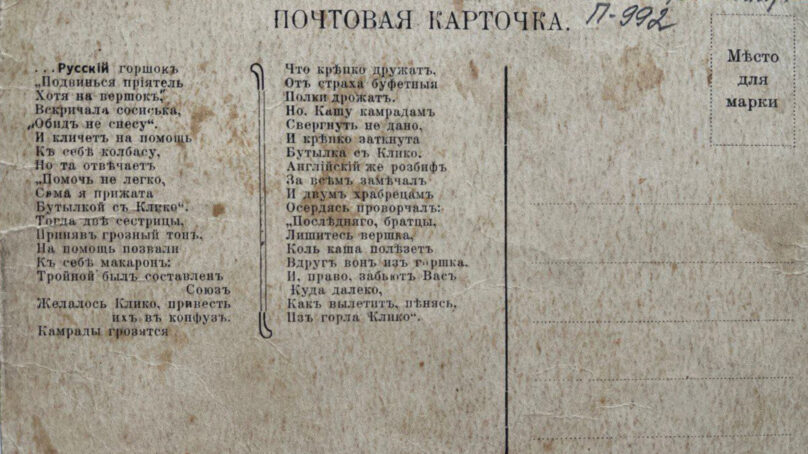 ПОЧТОВАЯ КАРТОЧКА.
П-992
Мѣсто
для
марки
...Русскій горшокъ
„Подвинься пріятель
Хотя на вершокъ,"
Вскричала сосиська,
„Обидъ не снесу“.
И кличетъ на помощь
Къ себѣ колбасу,
Но та отвѣчаетъ
„Помочь не легко,
Сама я прижата
Бутылкой съ Клико“.
Тогда двѣ сестрицы,
Принявъ грозный тонъ,
На помощь позвали
Къ себѣ макаронъ:
Тройной былъ составленъ
Союзъ
Желалось Клико, привесть
ихъ въ конфузъ.
Камрады грозятся
Что крѣпко дружатъ,
Отъ страха буфетныя
Полки дрожатъ.
Но. Кашу камрадамъ
Свергнуть не дано,
И крѣпко заткнута
Бутылка съ Клико.
Англійскій же розбифъ
За всѣмъ замѣчалъ
И двумъ храбрецамъ
Осердясь проворчалъ:
„Послѣдняго, братцы,
Лишитесь вершка,
Коль каша полѣзетъ
Вдругъ вонъ изъ горшка.
И, право, забьютъ Васъ
Куда далеко,
Какъ вылетитъ, пѣнясь,
Изъ горла Клико“.